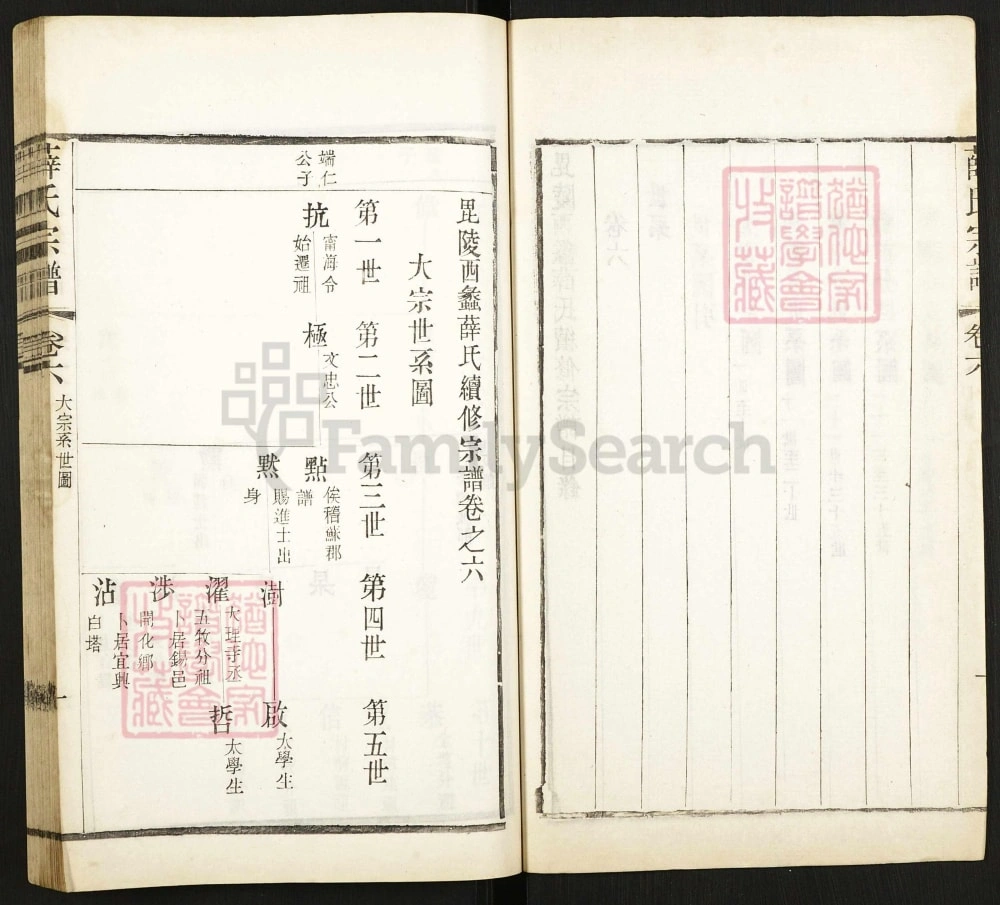 薛氏宗譜
卷六
毘陵西蠡薛氏續修宗譜卷之六
大宗世系圖
第一世
第二世
第三世
第四世
第五世
端仁
公子
抗
甯海令
始遷祖
極
文忠公
點
俟稽蘇郡
譜
默
賜進士出
身
澍
啟
太學生
濯
大理寺丞
五牧分祖
哲
太學生
涉
卜居錫邑
開化鄉
沾
卜居宜興
白塔
薛氏宗譜
卷六
大宗系世圖
一
猶他家
譜學會
收藏
猶他家
譜學會
收藏
FamilySearch